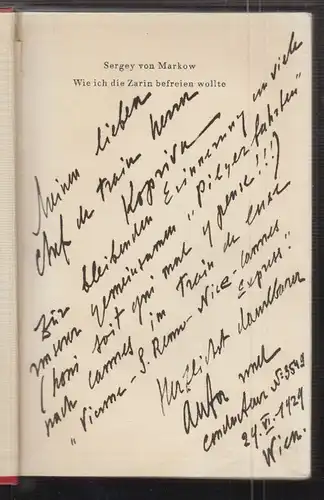 Sergey von Markow
Wie ich die Zarin befreien wollte
Meinem lieben
Chef de train Herrn
Kopriva
Zur bleibenden Erinnerung an viele
gemeinsamen "Pilgerfahrten"
(honi soit qui mal y pense!!!)
nach Cannes im Train de luxe
"Vienne-S. Remo-Nice-Cannes
Express."
Herzlichst dankbarer
Autor und
conducteur No 3549
29. VI. 1929
Wien.